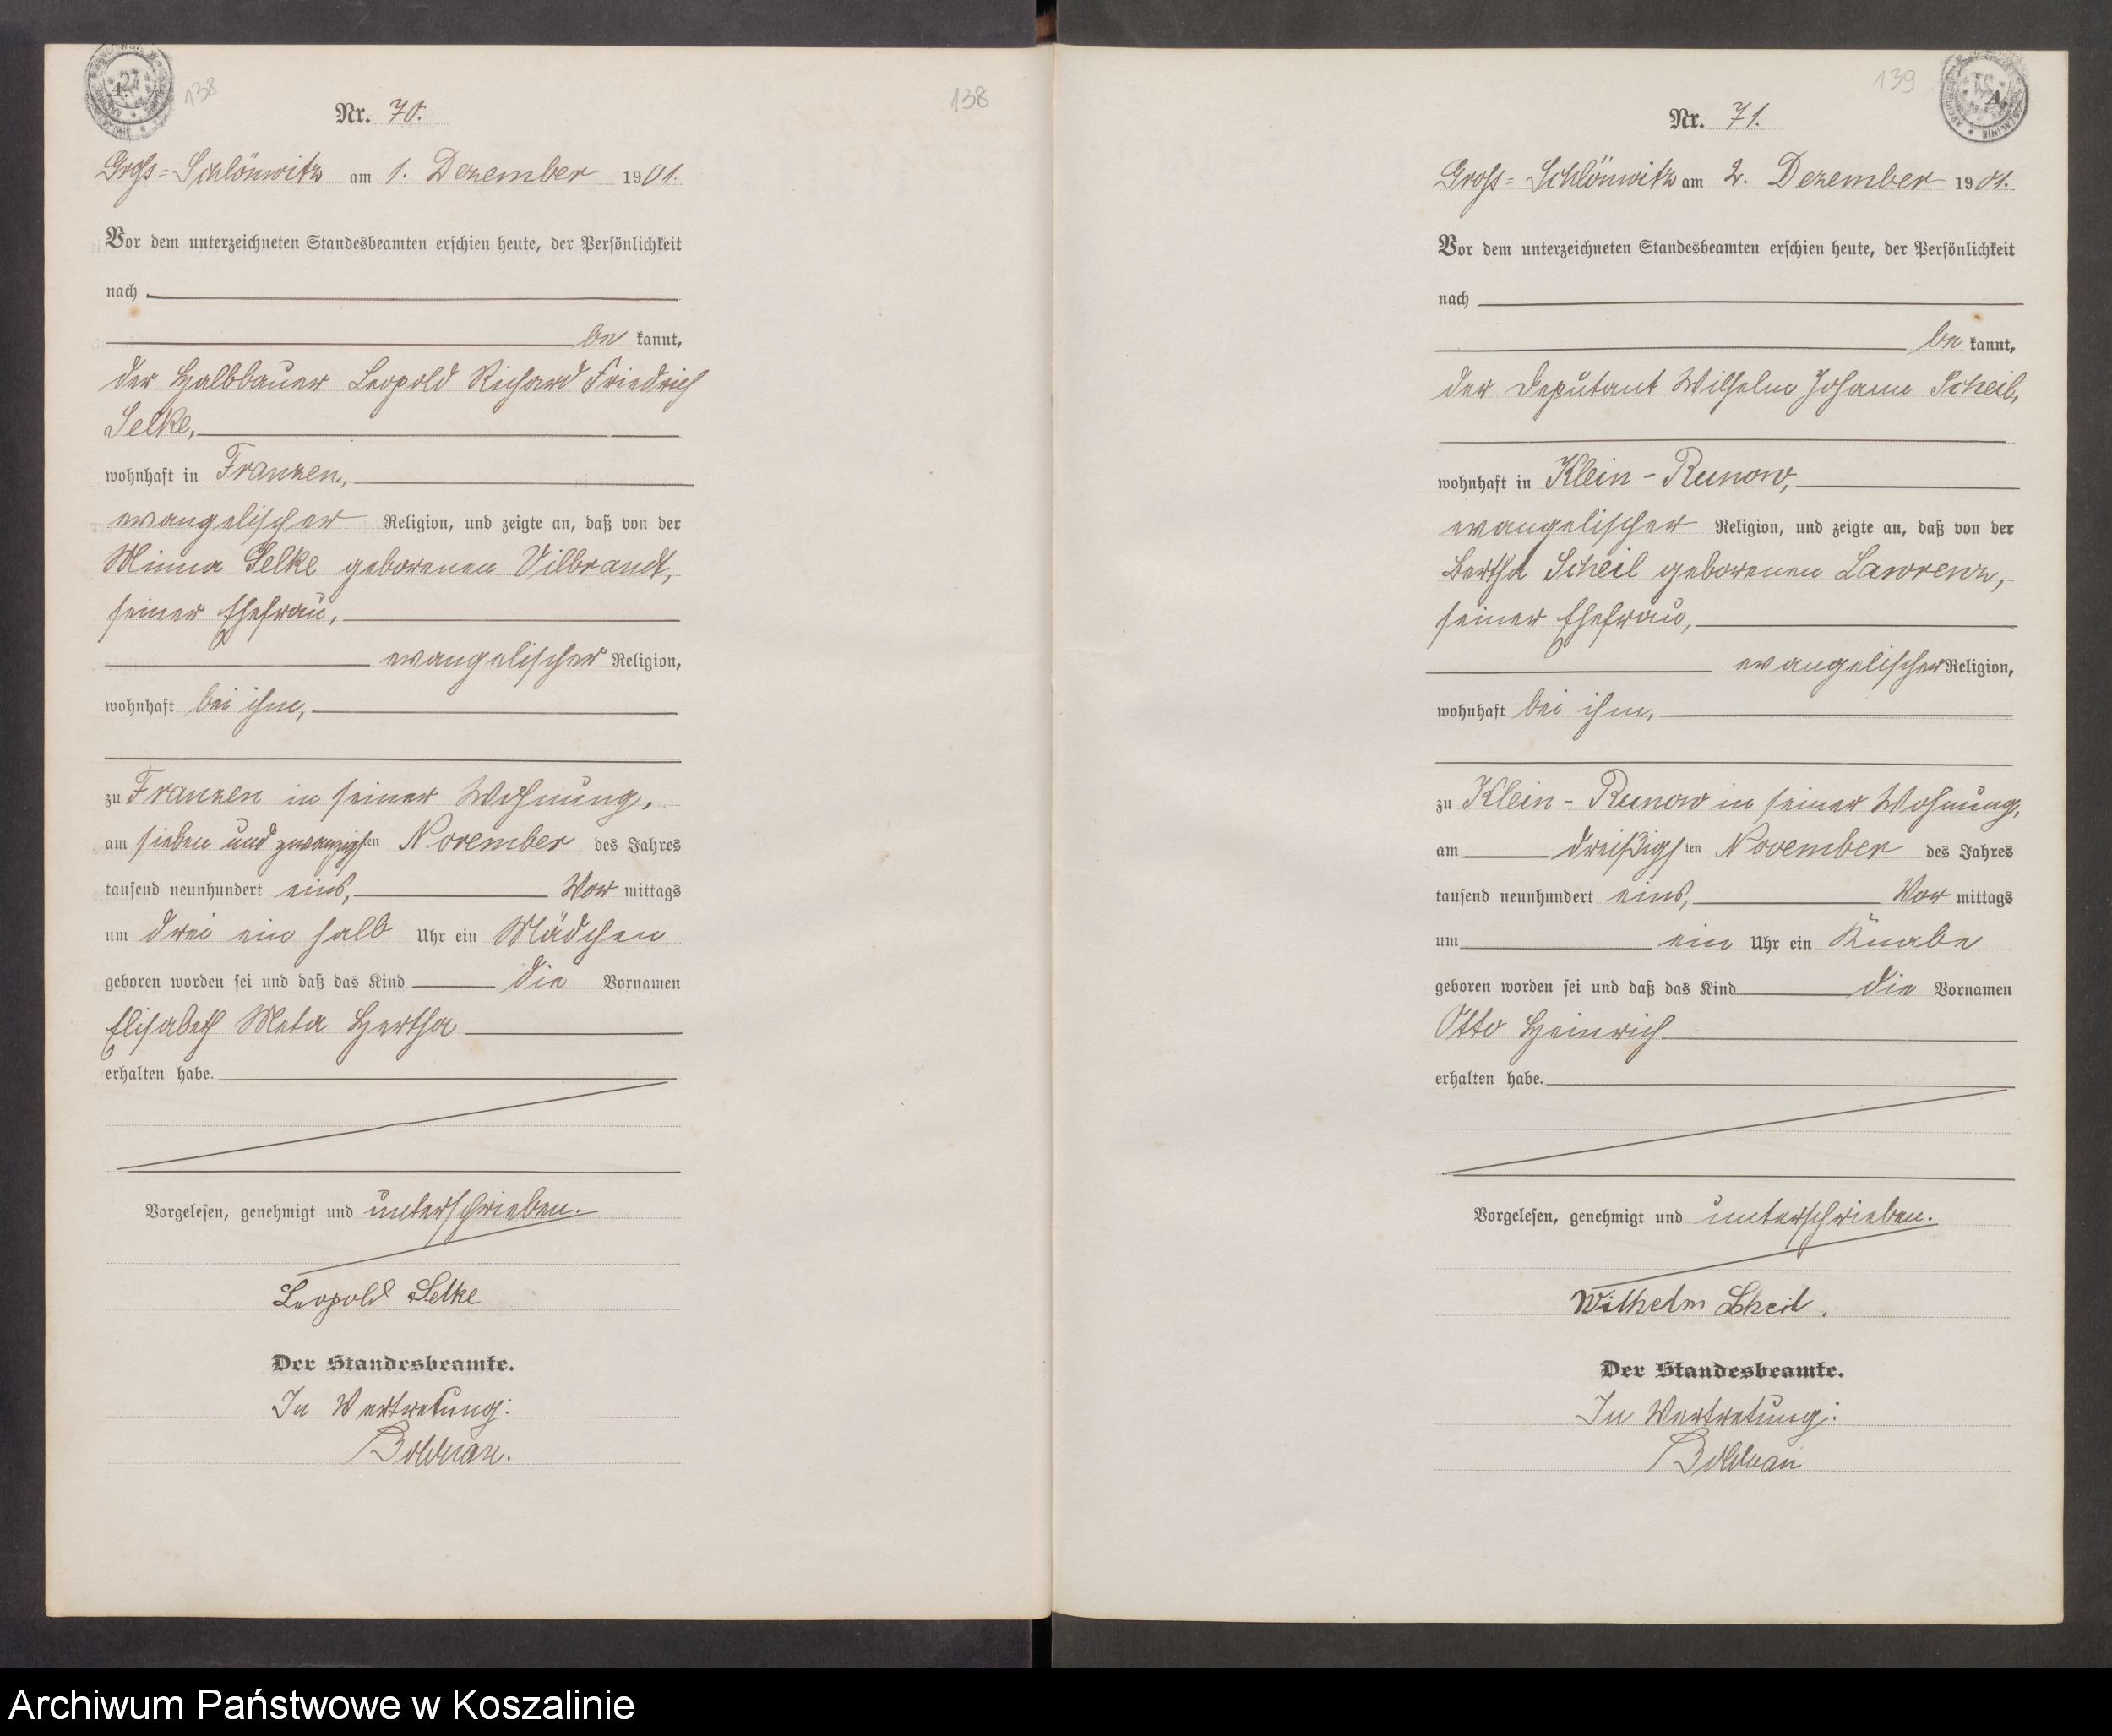 138
138
Nr. 70.
Gross=Schlönwitz am 1. Dezember 1901.
Vor dem unterzeichneten Standesbeamten erschien heute, der Persönlichkeit
nach
be kannt,
der Halbbauer Leopold Richard Friedrich
Selke,
wohnhaft in Franzen,
evangelischer Religion, und zeigte an, daß von der
Minna Selke geborenen Vilbrandt,
seiner Ehefrau,
evangelischer Religion,
wohnhaft bei ihm,
zu Franzen in seiner Wohnung,
am sieben und zwanzigsten November des Jahres
tausend neunhundert eins, Vor mittags
um drei ein halb Uhr ein Mädchen
geboren worden sei und daß das Kind die Vornamen
Elisabeth Meta Hertha
erhalten habe.
Vorgelesen, genehmigt und unterschrieben.
Leopold Selke
Der Standesbeamte.
In Vertretung:
Bolduan.
139
Nr. 71.
Gross=Schlönwitz am 2. Dezember 1901.
Vor dem unterzeichneten Standesbeamten erschien heute, der Persönlichkeit
nach
be kannt,
der Deputant Wilhelm Johann Scheil,
wohnhaft in Klein-Runow,
evangelischer Religion, und zeigte an, daß von der
Bertha Scheil geborenen Lawrenz,
seiner Ehefrau,
evangelischer Religion,
wohnhaft bei ihm,
zu Klein-Runow in seiner Wohnung,
am dreißigsten November des Jahres
tausend neunhundert eins, Vor mittags
um ein Uhr ein Knabe
geboren worden sei und daß das Kind die Vornamen
Otto Heinrich
erhalten habe.
Vorgelesen, genehmigt und unterschrieben.
Wilhelm Scheil.
Der Standesbeamte.
In Vertretung:
Bolduan
Archiwum Państwowe w Koszalinie